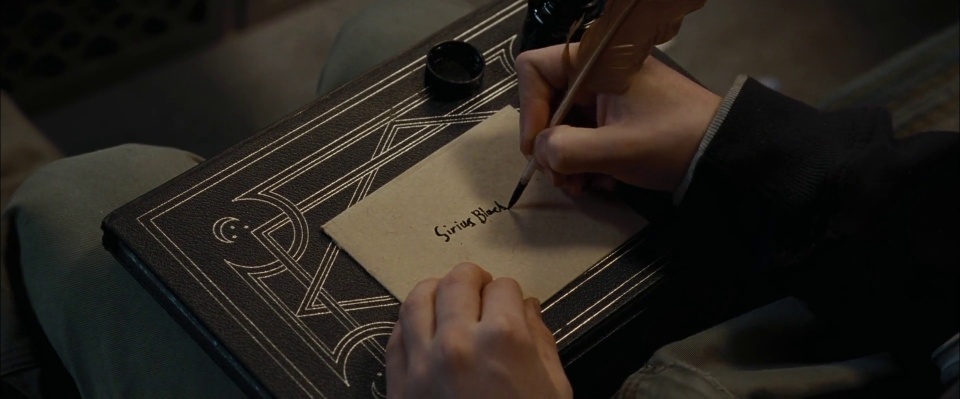 Sirius Black